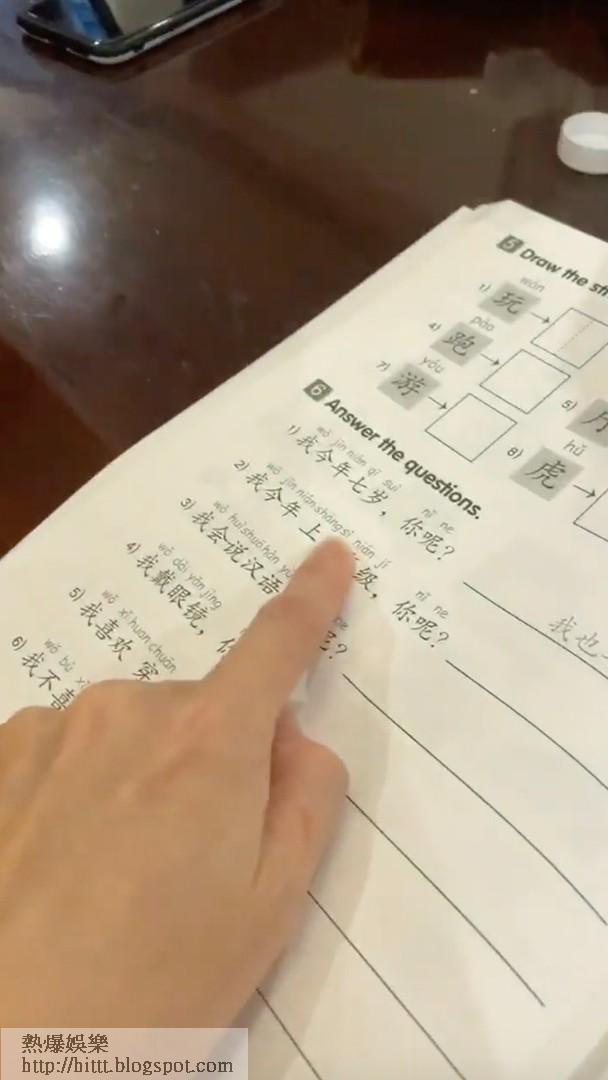 5 Draw the
wán
1) 玩
pǎo
4) 跑
5)
yóu
7) 游
hǔ
8) 虎
6 Answer the questions.
wǒ jīn nián qī suì nǐ ne
1) 我今年七岁，你呢？
我也
wǒ jīn nián shàng sì nián jí nǐ ne
2) 我今年上 级，你呢？
wǒ huì shuō hàn yǔ ne
3) 我会说汉语 呢？
wǒ dài yǎn jìng
4) 我戴眼镜，
wǒ xǐ huan chuān
5) 我喜欢穿
wǒ bù xǐ
6) 我不喜
熱爆娛樂
http://hittt.blogspot.com